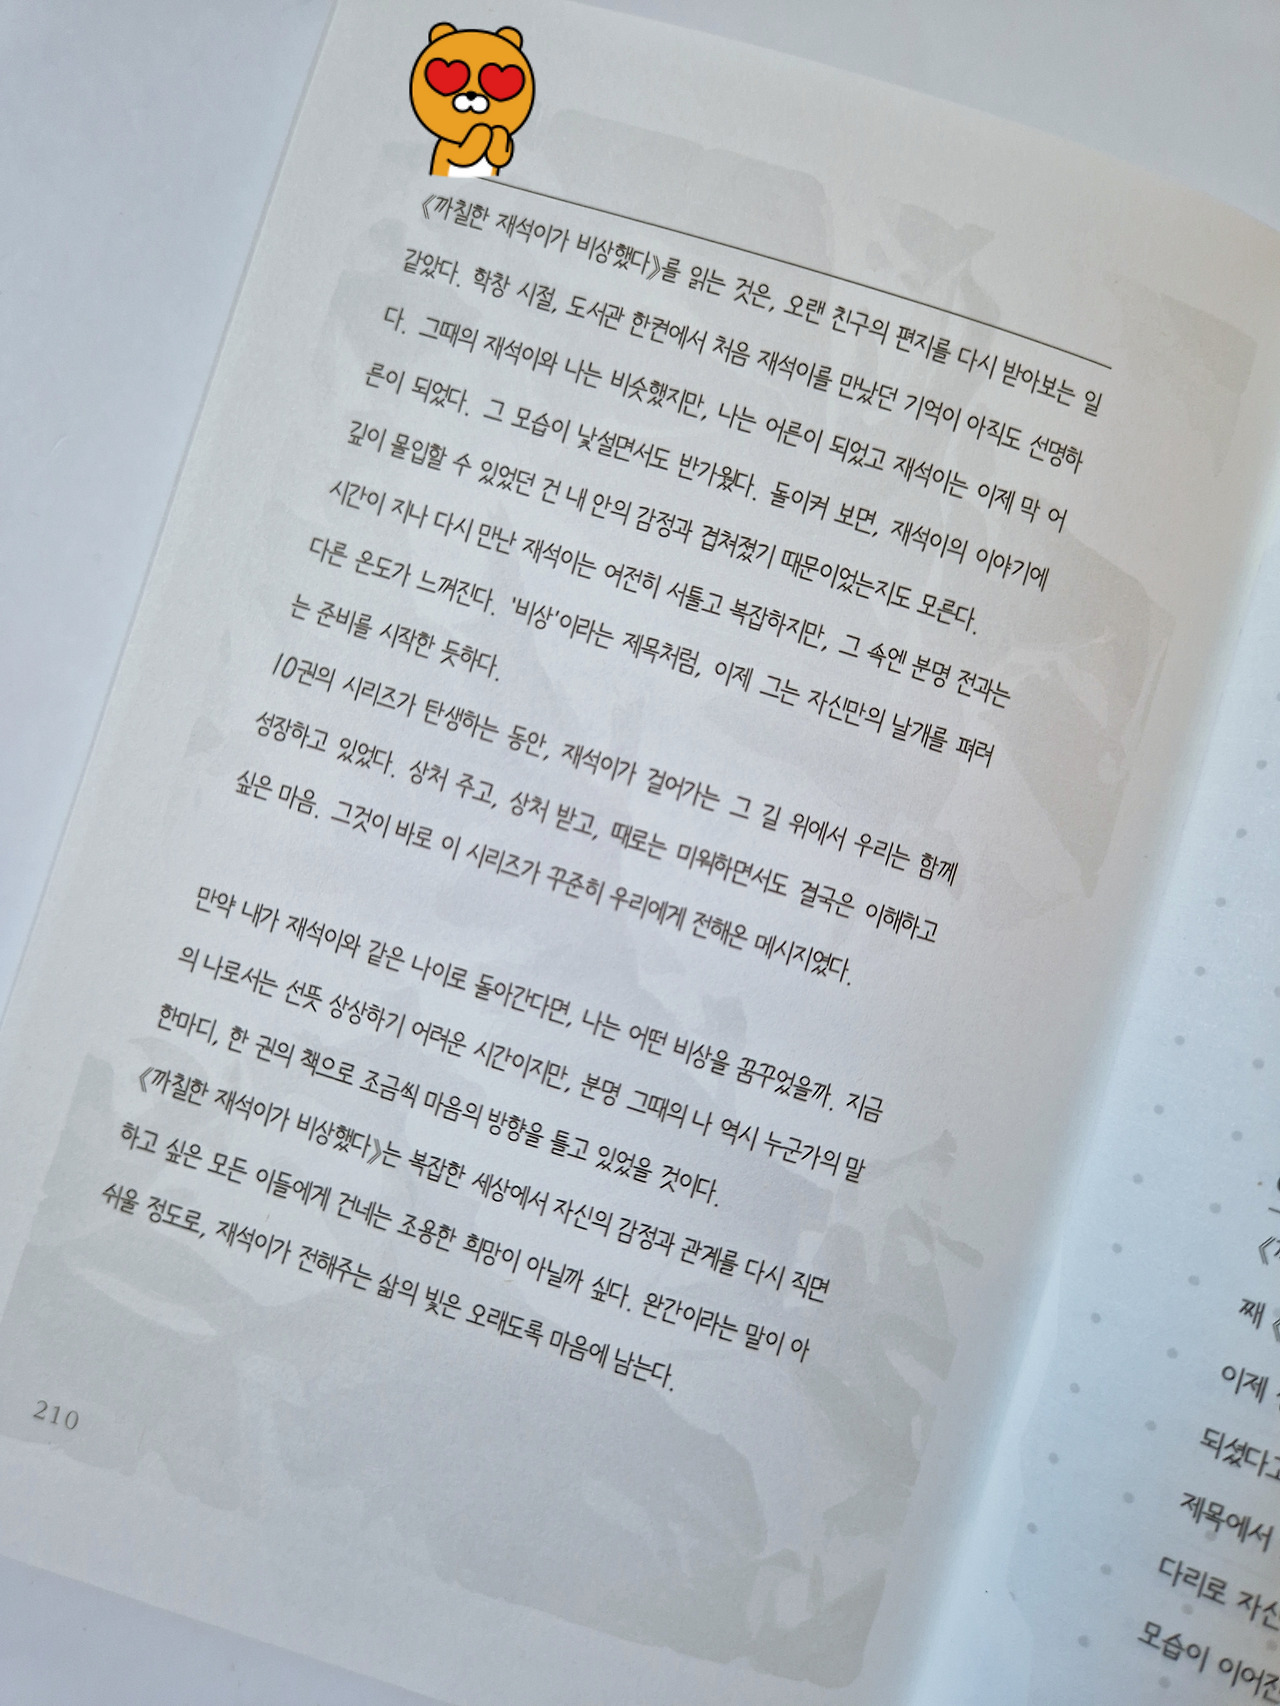 《까칠한 재석이가 비상했다》를 읽는 것은, 오랜 친구의 편지를 다시 받아보는 일
같았다. 학창 시절, 도서관 한켠에서 처음 재석이를 만났던 기억이 아직도 선명하
다. 그때의 재석이와 나는 비슷했지만, 나는 어른이 되었고 재석이는 이제 막 어
른이 되었다. 그 모습이 낯설면서도 반가웠다. 돌이켜 보면, 재석이의 이야기에
깊이 몰입할 수 있었던 건 내 안의 감정과 겹쳐졌기 때문이었는지도 모른다.
시간이 지나 다시 만난 재석이는 여전히 서툴고 복잡하지만, 그 속엔 분명 전과는
다른 온도가 느껴진다. '비상'이라는 제목처럼, 이제 그는 자신만의 날개를 펴려
는 준비를 시작한 듯하다.
10권의 시리즈가 탄생하는 동안, 재석이가 걸어가는 그 길 위에서 우리는 함께
성장하고 있었다. 상처 주고, 상처 받고, 때로는 미워하면서도 결국은 이해하고
싶은 마음. 그것이 바로 이 시리즈가 꾸준히 우리에게 전해온 메시지였다.
만약 내가 재석이와 같은 나이로 돌아간다면, 나는 어떤 비상을 꿈꾸었을까. 지금
의 나로서는 선뜻 상상하기 어려운 시간이지만, 분명 그때의 나 역시 누군가의 말
한마디, 한 권의 책으로 조금씩 마음의 방향을 틀고 있었을 것이다.
《까칠한 재석이가 비상했다》는 복잡한 세상에서 자신의 감정과 관계를 다시 직면
하고 싶은 모든 이들에게 건네는 조용한 희망이 아닐까 싶다. 완간이라는 말이 아
쉬울 정도로, 재석이가 전해주는 삶의 빛은 오래도록 마음에 남는다.
210
째
이제
되셨다고
제목에서
다리로 자신
모습이 이어진